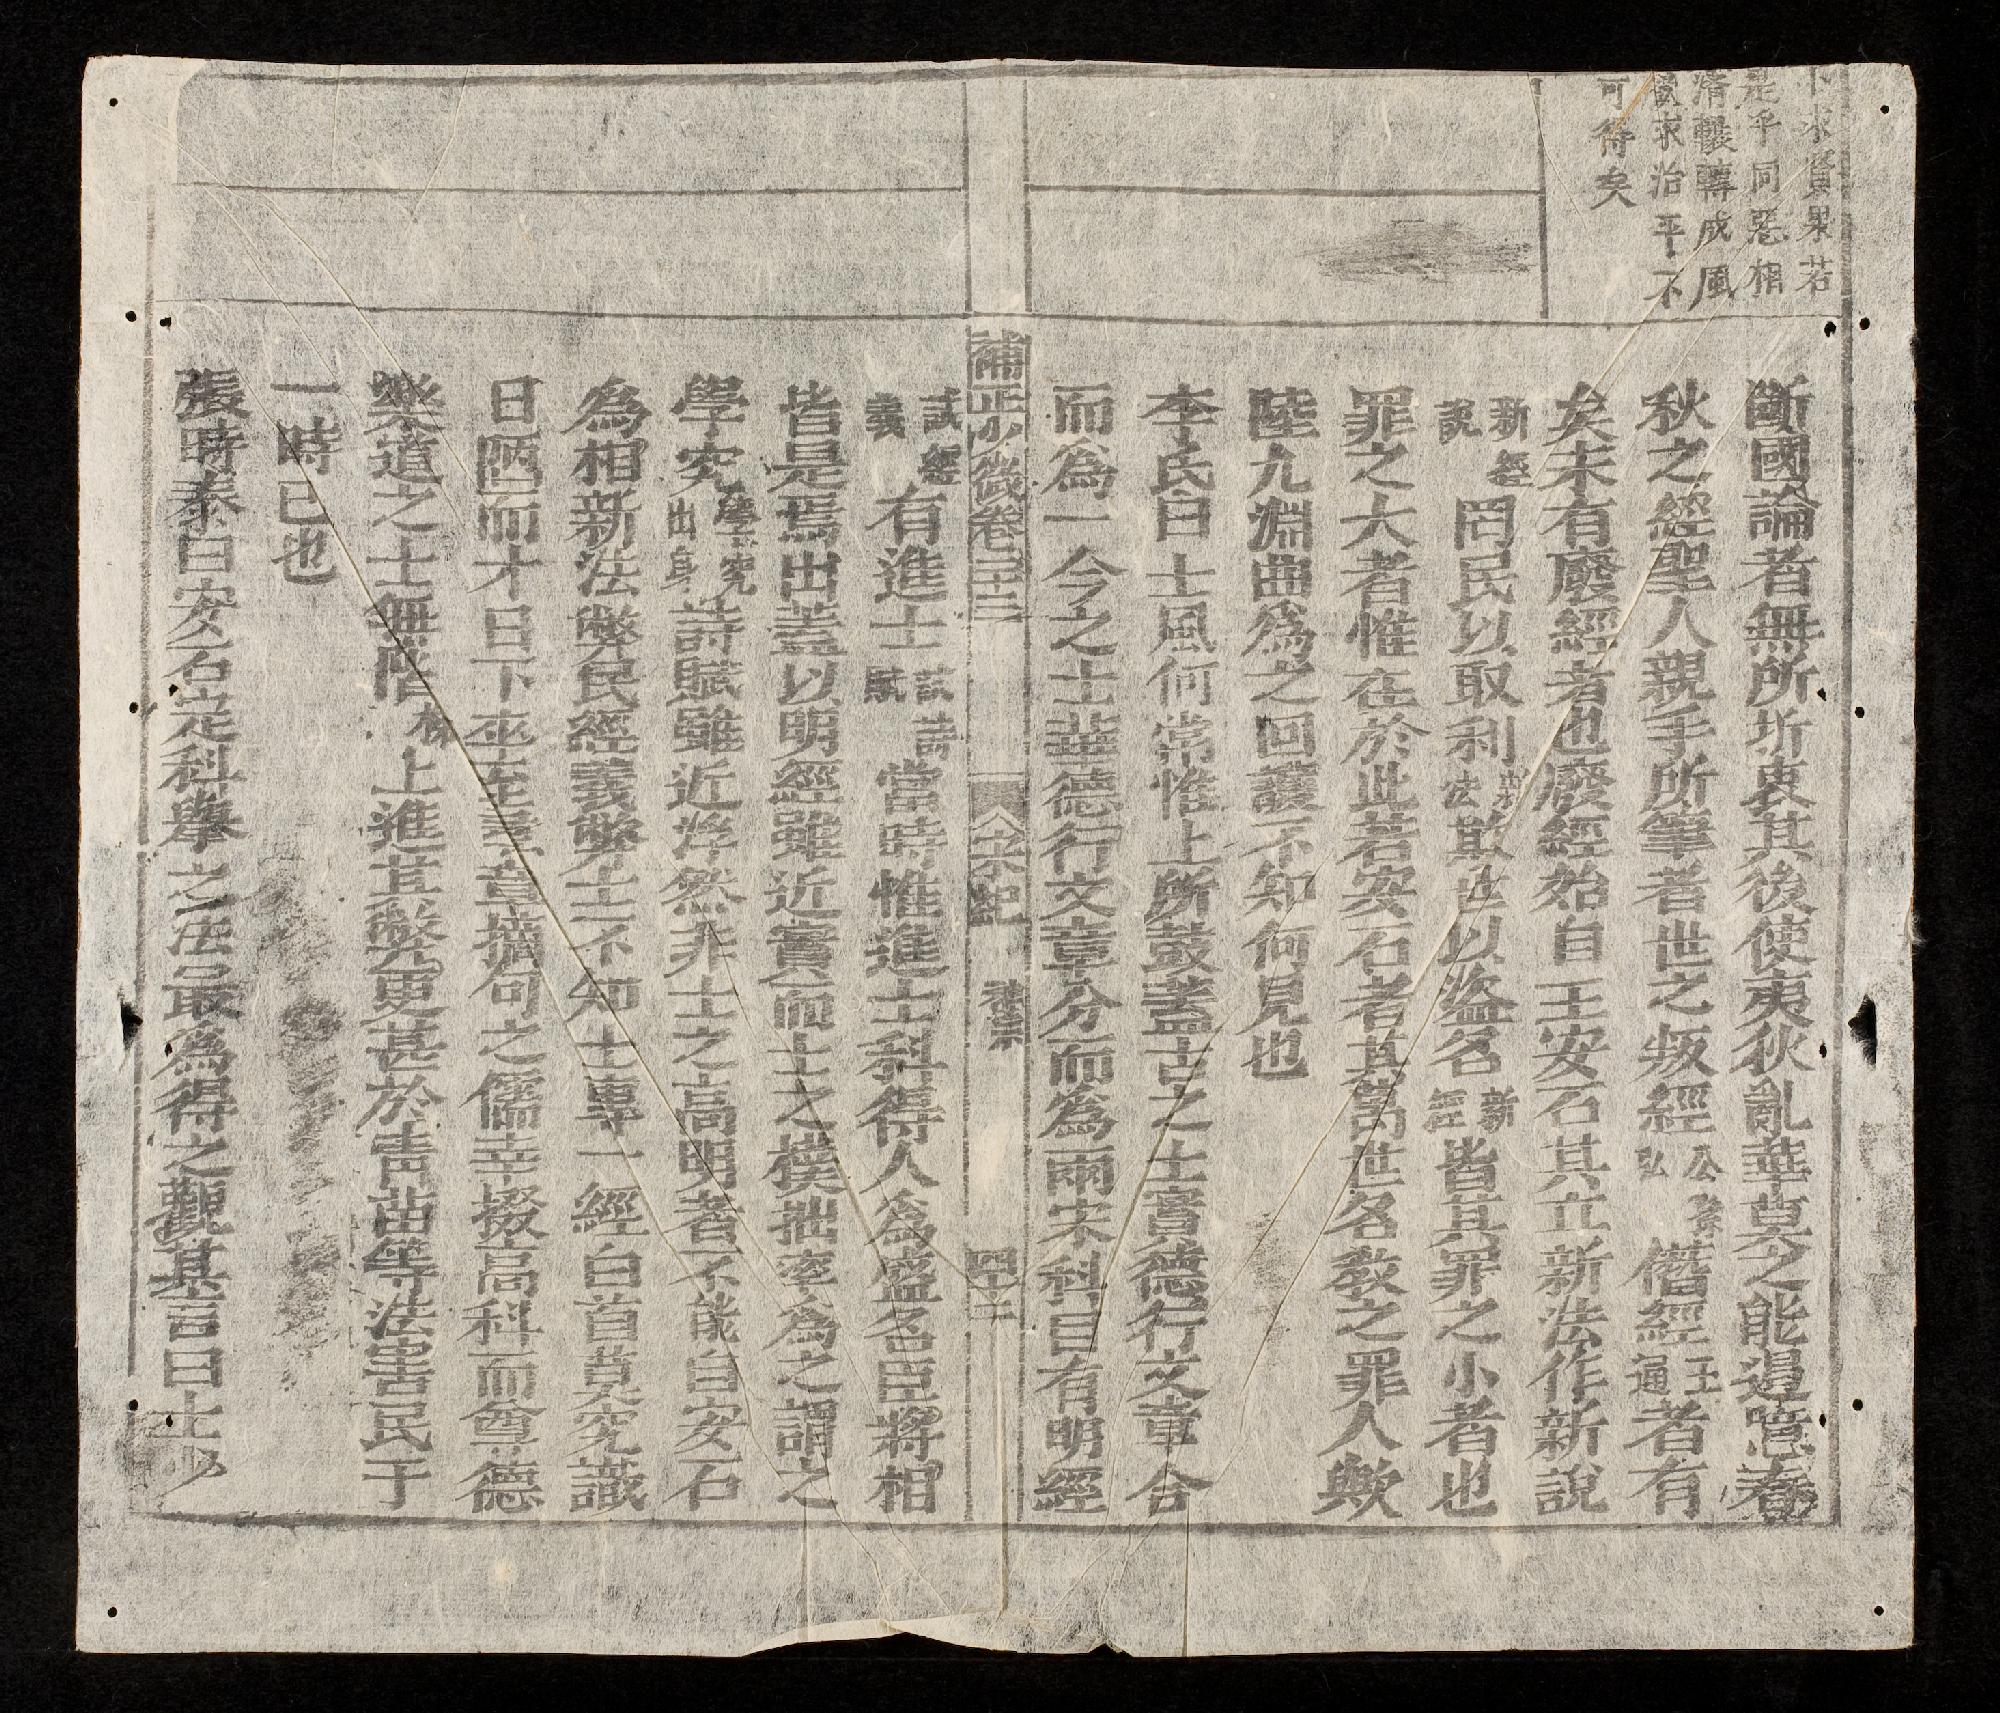 不求實果若
是乎同惡相
濟轉成風
求治平不
可得矣
斷國論者無所折衷其後使夷狄亂華莫之能遏噫春
秋之經聖人親手所筆者世之叛經公孫弘僭經王通者有
矣未有廢經者也廢經始自王安石其立新法作新說
新經說罔民以取利新法欺世以盜名新經皆其罪之小者也
罪之大者惟在於此若安石者其萬世名教之罪人歟
陸九淵曲為之回護不知何見也
李氏曰士風何常惟上所鼓蓋古之士實德行文章合
而為一今之士華德行文章分而為兩宋科目有明經
補正少微卷二十三
宋紀
神宗
四十二
試經義有進士試詩賦當時惟進士科得人為盛名臣將相
皆是焉出蓋以明經雖近實而士之樸拙率為之謂之
學究學究出身詩賦雖近浮然非士之高明者不能自安石
為相新法弊民經義弊士士不知士專一經白首莫究識
日陋而才日下卒至尋章摘句之儒幸掇高科而尊德
樂道之士無階梯上進其弊更甚於青苗等法害民于
一時已也
張時泰曰安石定科舉之法最為得之觀其言曰士少